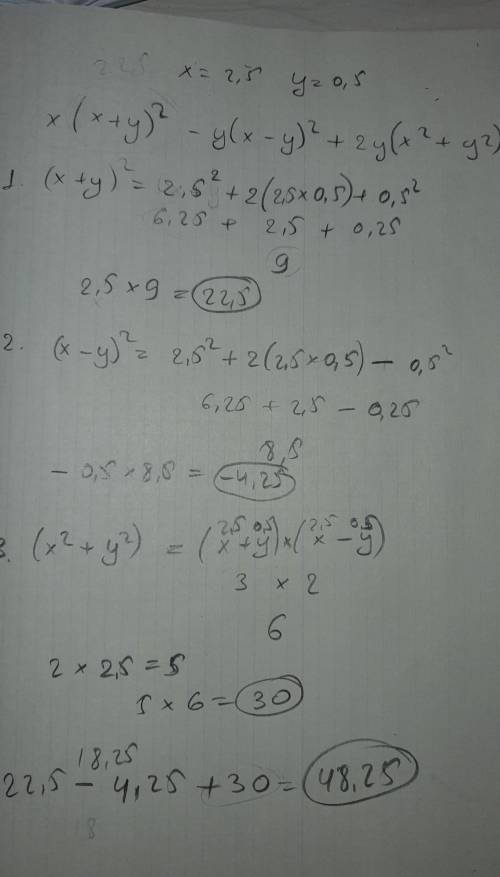 22,5 x = 2,5 y = 0,5
x(x+y)² - y(x-y)² + 2y(x²+y²)
1. (x+y)² = 2,5² + 2(2,5×0,5) + 0,5²
6,25 + 2,5 + 0,25
9
2,5 × 9 = 22,5
2. (x-y)² = 2,5² + 2(2,5×0,5) - 0,5²
6,25 + 2,5 - 0,25
8,5
- 0,5 × 8,5 = -4,25
3. (x²+y²) = (x+y)×(x-y)
2,5 0,5 2,5 0,5
3 × 2
6
2 × 2,5 = 5
5 × 6 = 30
18,25
22,5 - 4,25 + 30 = 48,25
8